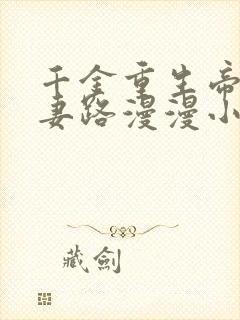 千金重生帝
妻路漫漫小
藏劍